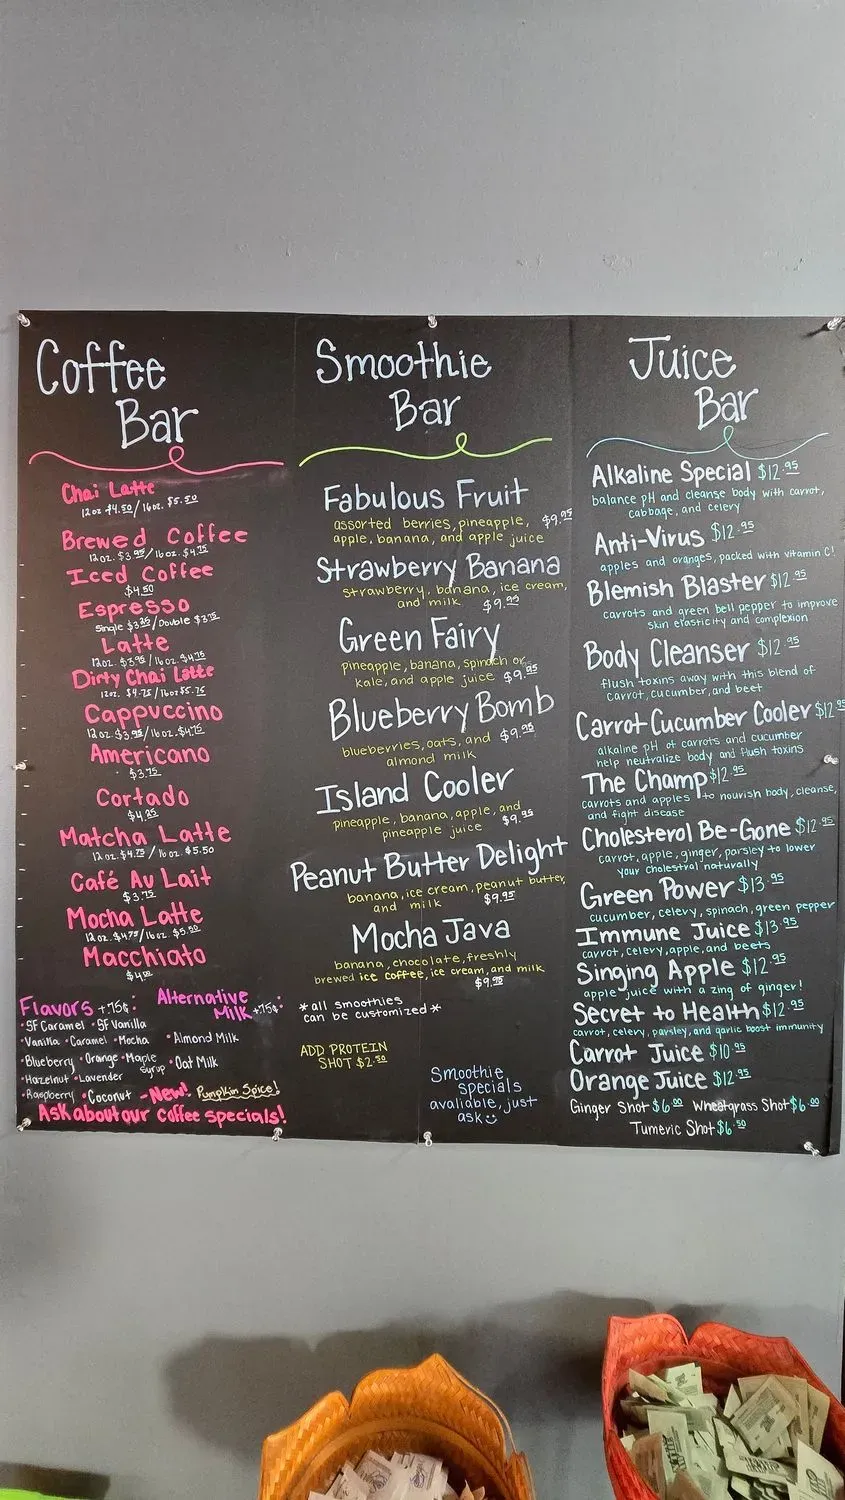 Coffee
Bar
Chai Latte
12oz $4.50/16oz. $5.50
Brewed Coffee
12oz. $3.95/16oz. $4.75
Iced Coffee
$4.50
Espresso
Single $3.25/Double $3.75
Latte
12oz. $3.95/16oz. $4.75
Dirty Chai Latte
12oz. $4.75/16oz $5.75
Cappuccino
12oz. $3.95/16oz. $4.75
Americano
$3.75
Cortado
$4.25
Matcha Latte
12oz. $4.75/16oz. $5.50
Café Au Lait
$3.75
Mocha Latte
12oz. $4.75/16oz. $5.50
Macchiato
$4.00
Flavors +.75¢:
•SF Caramel •SF Vanilla
•Vanilla •Caramel •Mocha
•Blueberry •Orange •Maple Syrup
•Hazelnut •Lavender
•Raspberry •Coconut -New! Pumpkin Spice!
Alternative
Milk +.75¢:
•Almond Milk
•Oat Milk
Ask about our coffee specials!
Smoothie
Bar
Fabulous Fruit
assorted berries, pineapple, $9.95
apple, banana, and apple juice
Strawberry Banana
strawberry, banana, ice cream,
and milk $9.95
Green Fairy
pineapple, banana, spinach or
kale, and apple juice $9.95
Blueberry Bomb
blueberries, oats, and $9.95
almond milk
Island Cooler
pineapple, banana, apple, and
pineapple juice $9.95
Peanut Butter Delight
banana, ice cream, peanut butter,
and milk $9.95
Mocha Java
banana, chocolate, freshly
brewed ice coffee, ice cream, and milk
$9.95
*all smoothies
can be customized*
ADD PROTEIN
SHOT $2.50
Smoothie
specials
avaliable, just
ask
Juice
Bar
Alkaline Special $12.95
balance pH and cleanse body with carrot,
cabbage, and celery
Anti-Virus $12.95
apples and oranges, packed with vitamin C!
Blemish Blaster $12.95
carrots and green bell pepper to improve
skin elasticity and complexion
Body Cleanser $12.95
flush toxins away with this blend of
carrot, cucumber, and beet
Carrot Cucumber Cooler $12.95
alkaline pH of carrots and cucumber
help neutralize body and flush toxins
The Champ $12.95
carrots and apples to nourish body, cleanse,
and fight disease
Cholesterol Be-Gone $12.95
carrot, apple, ginger, parsley to lower
your cholestrol naturally
Green Power $13.95
cucumber, celery, spinach, green pepper
Immune Juice $13.95
carrot, celery, apple, and beets
Singing Apple $12.95
apple juice with a zing of ginger!
Secret to Health $12.95
carrot, celery, parsley, and garlic boost immunity
Carrot Juice $10.95
Orange Juice $12.95
Ginger Shot $6.00 Wheatgrass Shot $6.00
Tumeric Shot $6.50